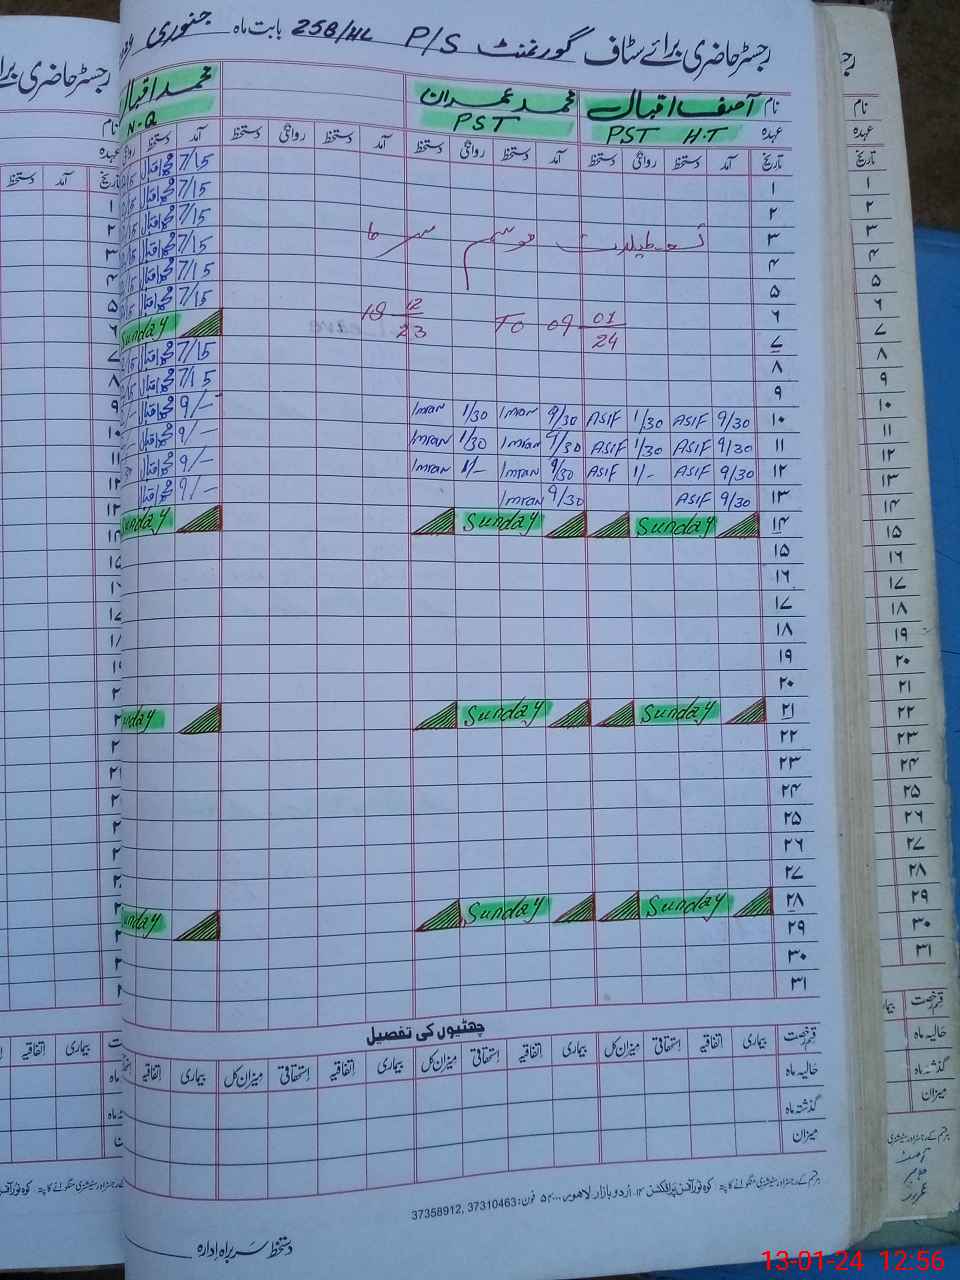 رجسٹر حاضری برائے سٹاف گورنمنٹ P/S 258/HL بابت ماہ جنوری
نام آصف اقبال محمد عمران محمد اقبال
عہدہ PST H.T PST N.Q
تاریخ آمد دستخط روانگی دستخط آمد دستخط روانگی دستخط آمد دستخط روانگی دستخط آمد دستخط
۱ 7/15 محمد اقبال
۲ 7/15 محمد اقبال
۳ تعطیلات موسم سرما 7/15 محمد اقبال
۴ 7/15 محمد اقبال
۵ 7/15 محمد اقبال
۶ 18 12/23 TO 09 01/24 7/15 محمد اقبال
۷ Sunday
۸ 7/15 محمد اقبال
۹ 7/15 محمد اقبال
۱۰ 9/30 ASIF 1/30 ASIF 9/30 Imran 1/30 Imran 9/- محمد اقبال
۱۱ 9/30 ASIF 1/30 ASIF 9/30 Imran 1/30 Imran 9/- محمد اقبال
۱۲ 9/30 ASIF 1/- ASIF 9/30 Imran 1/- Imran 9/- محمد اقبال
۱۳ 9/30 ASIF 9/30 Imran 9/- محمد اقبال
۱۴ Sunday Sunday Sunday
۱۵
۱۶
۱۷
۱۸
۱۹
۲۰
۲۱ Sunday Sunday Sunday
۲۲
۲۳
۲۴
۲۵
۲۶
۲۷
۲۸ Sunday Sunday Sunday
۲۹
۳۰
۳۱
چھٹیوں کی تفصیل
قسم رخصت بیماری اتفاقیہ استحقاقی میزان کل بیماری اتفاقیہ استحقاقی میزان کل بیماری اتفاقیہ استحقاقی میزان کل بیماری اتفاقیہ
حالیہ ماہ
گذشتہ ماہ
میزان
37358912, 37310463 :فون
دستخط سربراہ ادارہ
13-01-24 12:56